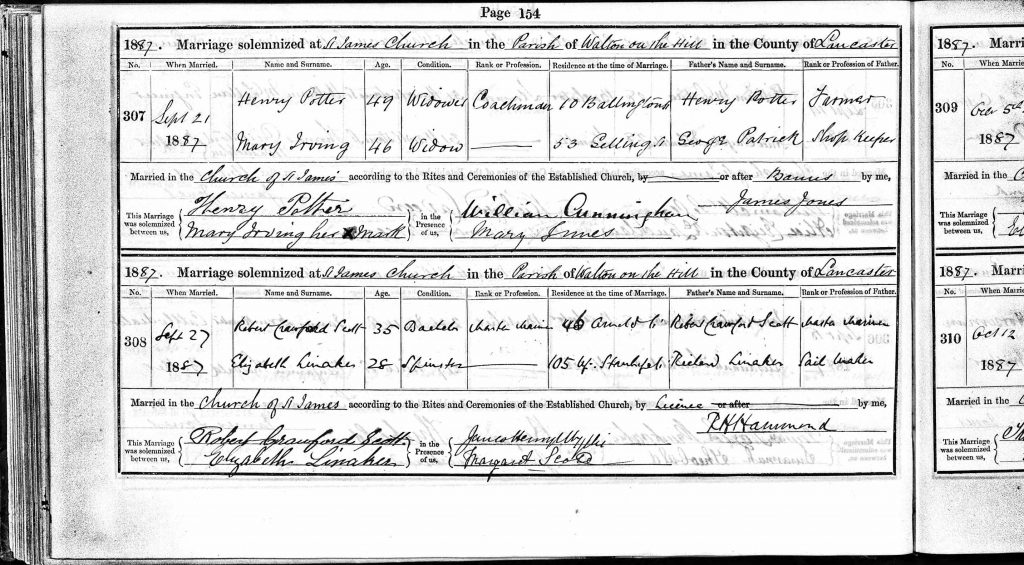 Page 154
1887. Marriage solemnized at St James Church in the Parish of Walton on the Hill in the County of Lancaster
No. When Married. Name and Surname. Age. Condition. Rank or Profession. Residence at the time of Marriage. Father's Name and Surname. Rank or Profession of Father.
307 Sept 21 Henry Potter 49 Widower Coachman 10 Henry Potter Farmer
1887 Mary Irving 46 Widow 53 George Patrick Shop Keeper
Married in the Church of St James according to the Rites and Ceremonies of the Established Church, by or after Banns by me,
This Marriage was solemnized between us, Henry Potter in the Presence of us, William Cunningham James Jones
Mary Irving her X Mark Mary Innes
1887. Marriage solemnized at St James Church in the Parish of Walton on the Hill in the County of Lancaster
No. When Married. Name and Surname. Age. Condition. Rank or Profession. Residence at the time of Marriage. Father's Name and Surname. Rank or Profession of Father.
308 Sept 27 Robert Crawford Scott 35 Bachelor Master Mariner 46 Arnold St Robert Crawford Scott Master Mariner
1887 Elizabeth Linaker 28 Spinster 105 Richard Linaker Sail Maker
Married in the Church of St James according to the Rites and Ceremonies of the Established Church, by Licence or after by me,
This Marriage was solemnized between us, Robert Crawford Scott in the Presence of us, James Henry Wyllie P. H. Hammond
Elizabeth Linaker Margaret Scott
1887. Marri
No. When Married.
309 Oct 5th
1887
Married in the
This Marriage was solemnized between us,
1887. Marri
No. When Married.
310 Oct 12
1887
Married in the
This Marriage was solemnized between us,